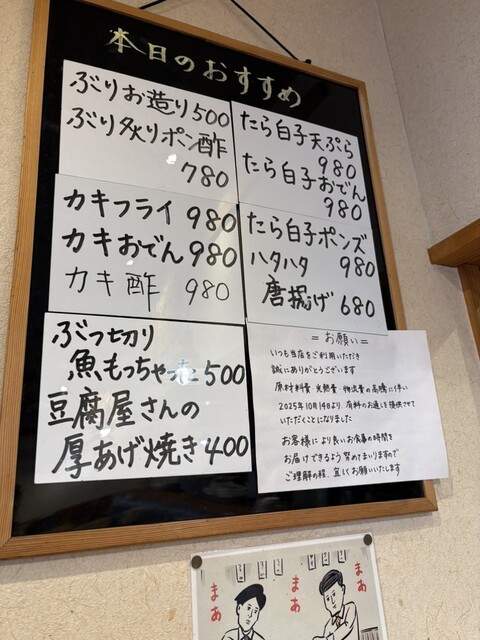 本日のおすすめ
ぶりお造り500
ぶり炙りポン酢
780
たら白子天ぷら
980
たら白子おでん
980
カキフライ 980
カキおでん 980
カキ酢 980
たら白子ポンズ
980
ハタハタ
唐揚げ 680
ぶつ切り
魚もっちゃった500
豆腐屋さんの
厚あげ焼き400
=お願い=
いつも当店をご利用いただき
誠にありがとうございます
原材料費・光熱費・物流費の高騰に伴い
2025年10月14日より、有料のお通し提供させて
いただくことになりました
お客様により良いお食事の時間を
お届けできるよう努めてまいりますので
ご理解の程、宜しくお願いいたします
まあ
まあ
まあ